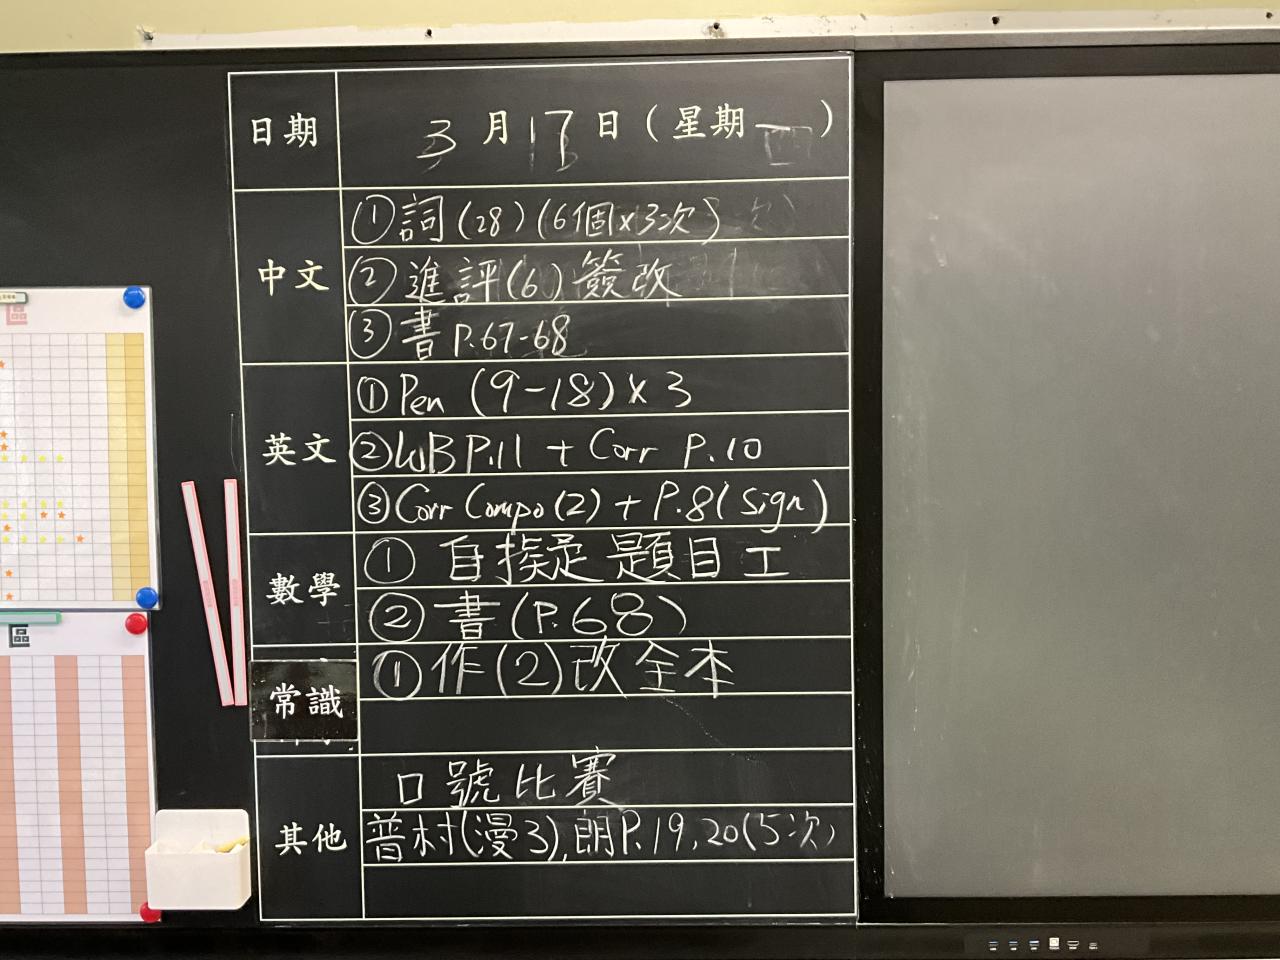 日期 3月17日(星期一)
中文
①詞(28)(6個×3次)
②進評(6)簽改
③書P.67-68
英文
①Pen (9-18)×3
②WB P.11 + Corr P.10
③Corr Compo(2) + P.8(sign)
數學
① 自擬題目工
② 書(P.68)
常識
①作(2)改全本
其他
口號比賽
普村(漫3),朗P.19,20(5次)
區
區